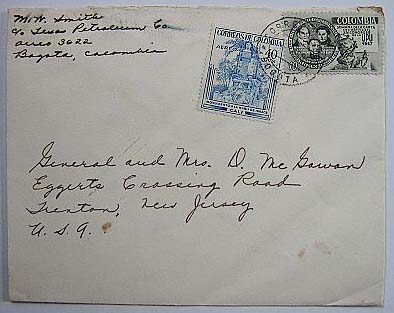 M. W. Smith
c/o Texas Petroleum Co
Aereo 3622
Bogota, Colombia
CORREOS DE COLOMBIA
AEREO
10
CALI
CORREO
BOGOTA
COLOMBIA
General and Mrs. D. McGowan
Eggerts Crossing Road
Trenton, New Jersey
U. S. A.